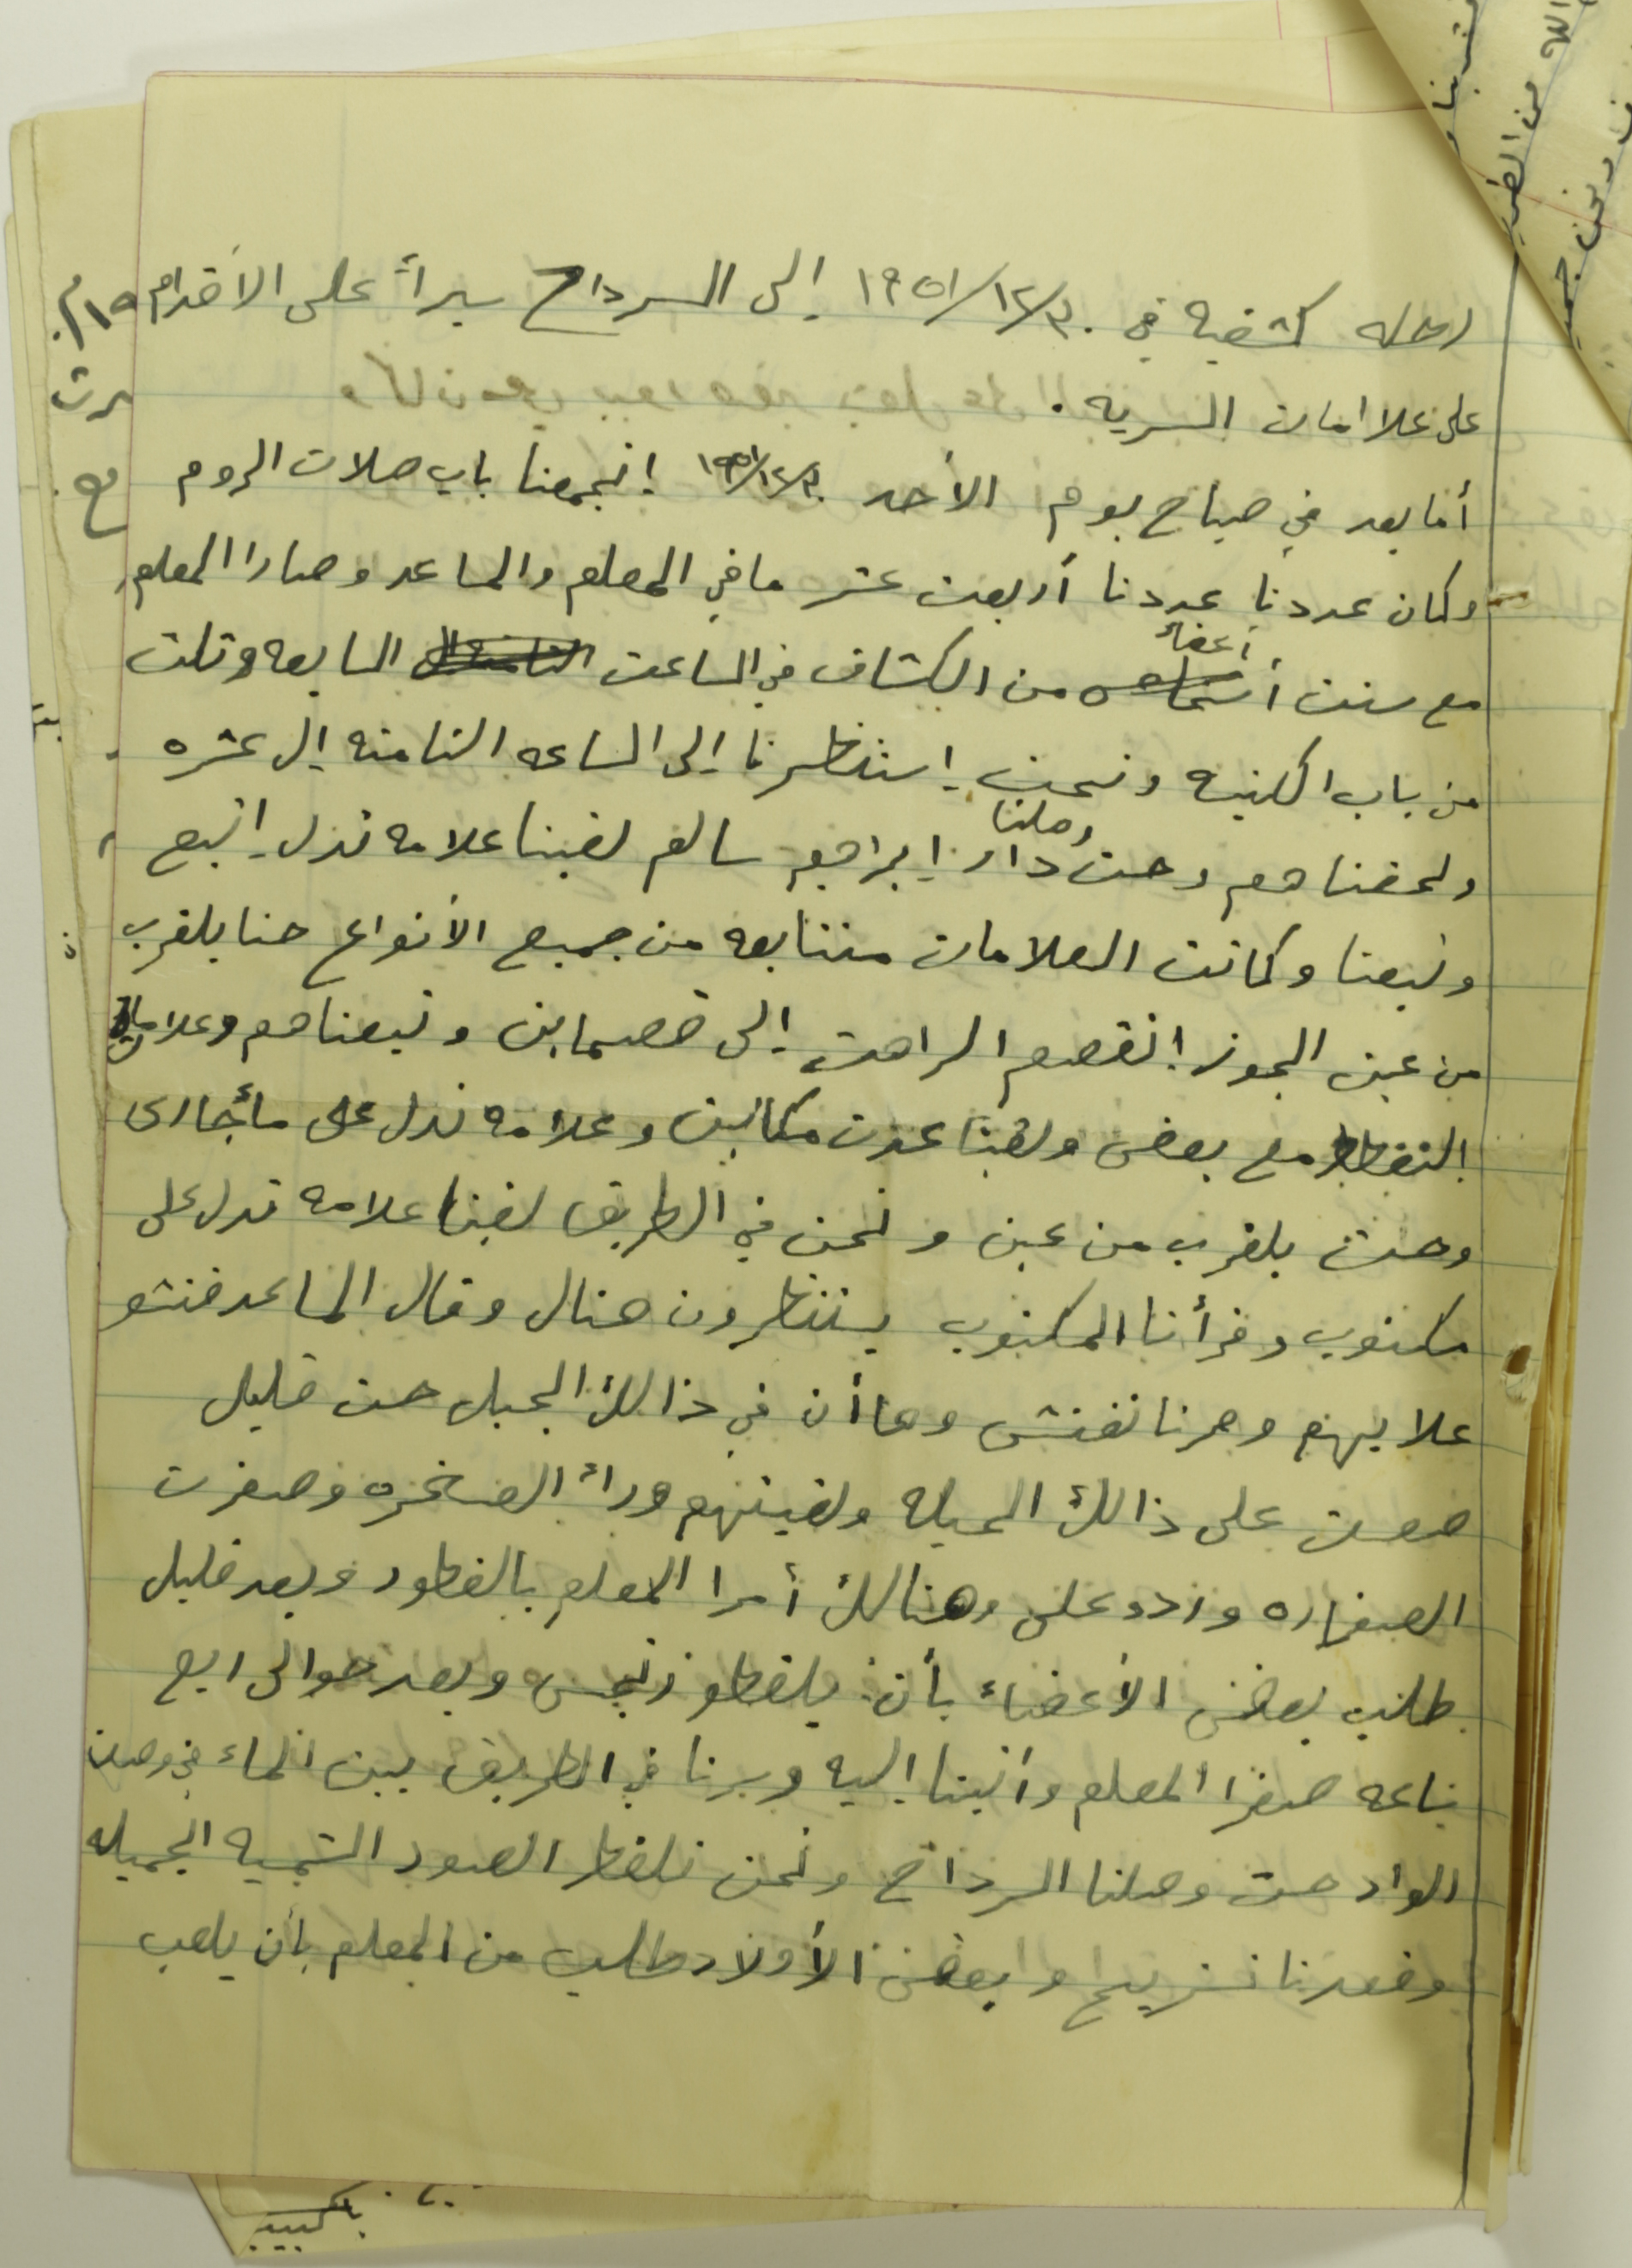 رحله كشفيه في ١٩٥١/١٢/٣٠ إلى السرداح سيراً على الأقدام
على علا امات السريه.
أما بعد في صباح يوم الأحد ١٩٥١/١٢/٣٠ إنجمعنا باب صلات الروم
وكان عددنا عددنا أربعت عشر ما في المعلم والمساعد وصارا المعلم
مع ستت أعضاء من الكشاف في الساعت السابعه وتلت
من باب الكنيسه ونحن إستنظرنا إلى الساعه الثامنه إل عشره
ولحقناهم وحت وصلنا دار إبراهيم سالم لقينا علامه تدل إتبع
وتبعنا وكانت العلامات متتابعه من جميع الأنواع حتا بلقرب
من عين الجوز إنقصم الراهت إلى قصماين وتبعناهم وعلامات
إلتقط مع بعض ولقينا عدت مكاتيب وعلامه تدل على مأجارى
وحت بلقرب من عين ونحن في الطريق لقينا علامه تدل على
مكتوب وقرأنا المكتوب يستنظرون هنال وقال الماعد فتشو
علا يهم وصرنا نفتش وها أن في ذالك الجبل حت قليل
صعدت على ذالك الجبله ولقيتهم وراء الصخره وصفرت
الصفاره وردو على وهنالك أمرا المعلم بالفطور وبعد قليل
طلب بعض الأعضاء بأن يلقطو نرجس وبعد حوالى اربع
ساعه صفرا المعلم وأتينا إليه وسرنا في الطريق بين الماء في وصت
الواد حت وصلنا السرداح ونحن نلقط الصور الشميه الجميله
وقعدنا نستريح وبعض الأولاد طلب من المعلم بأن يلعب